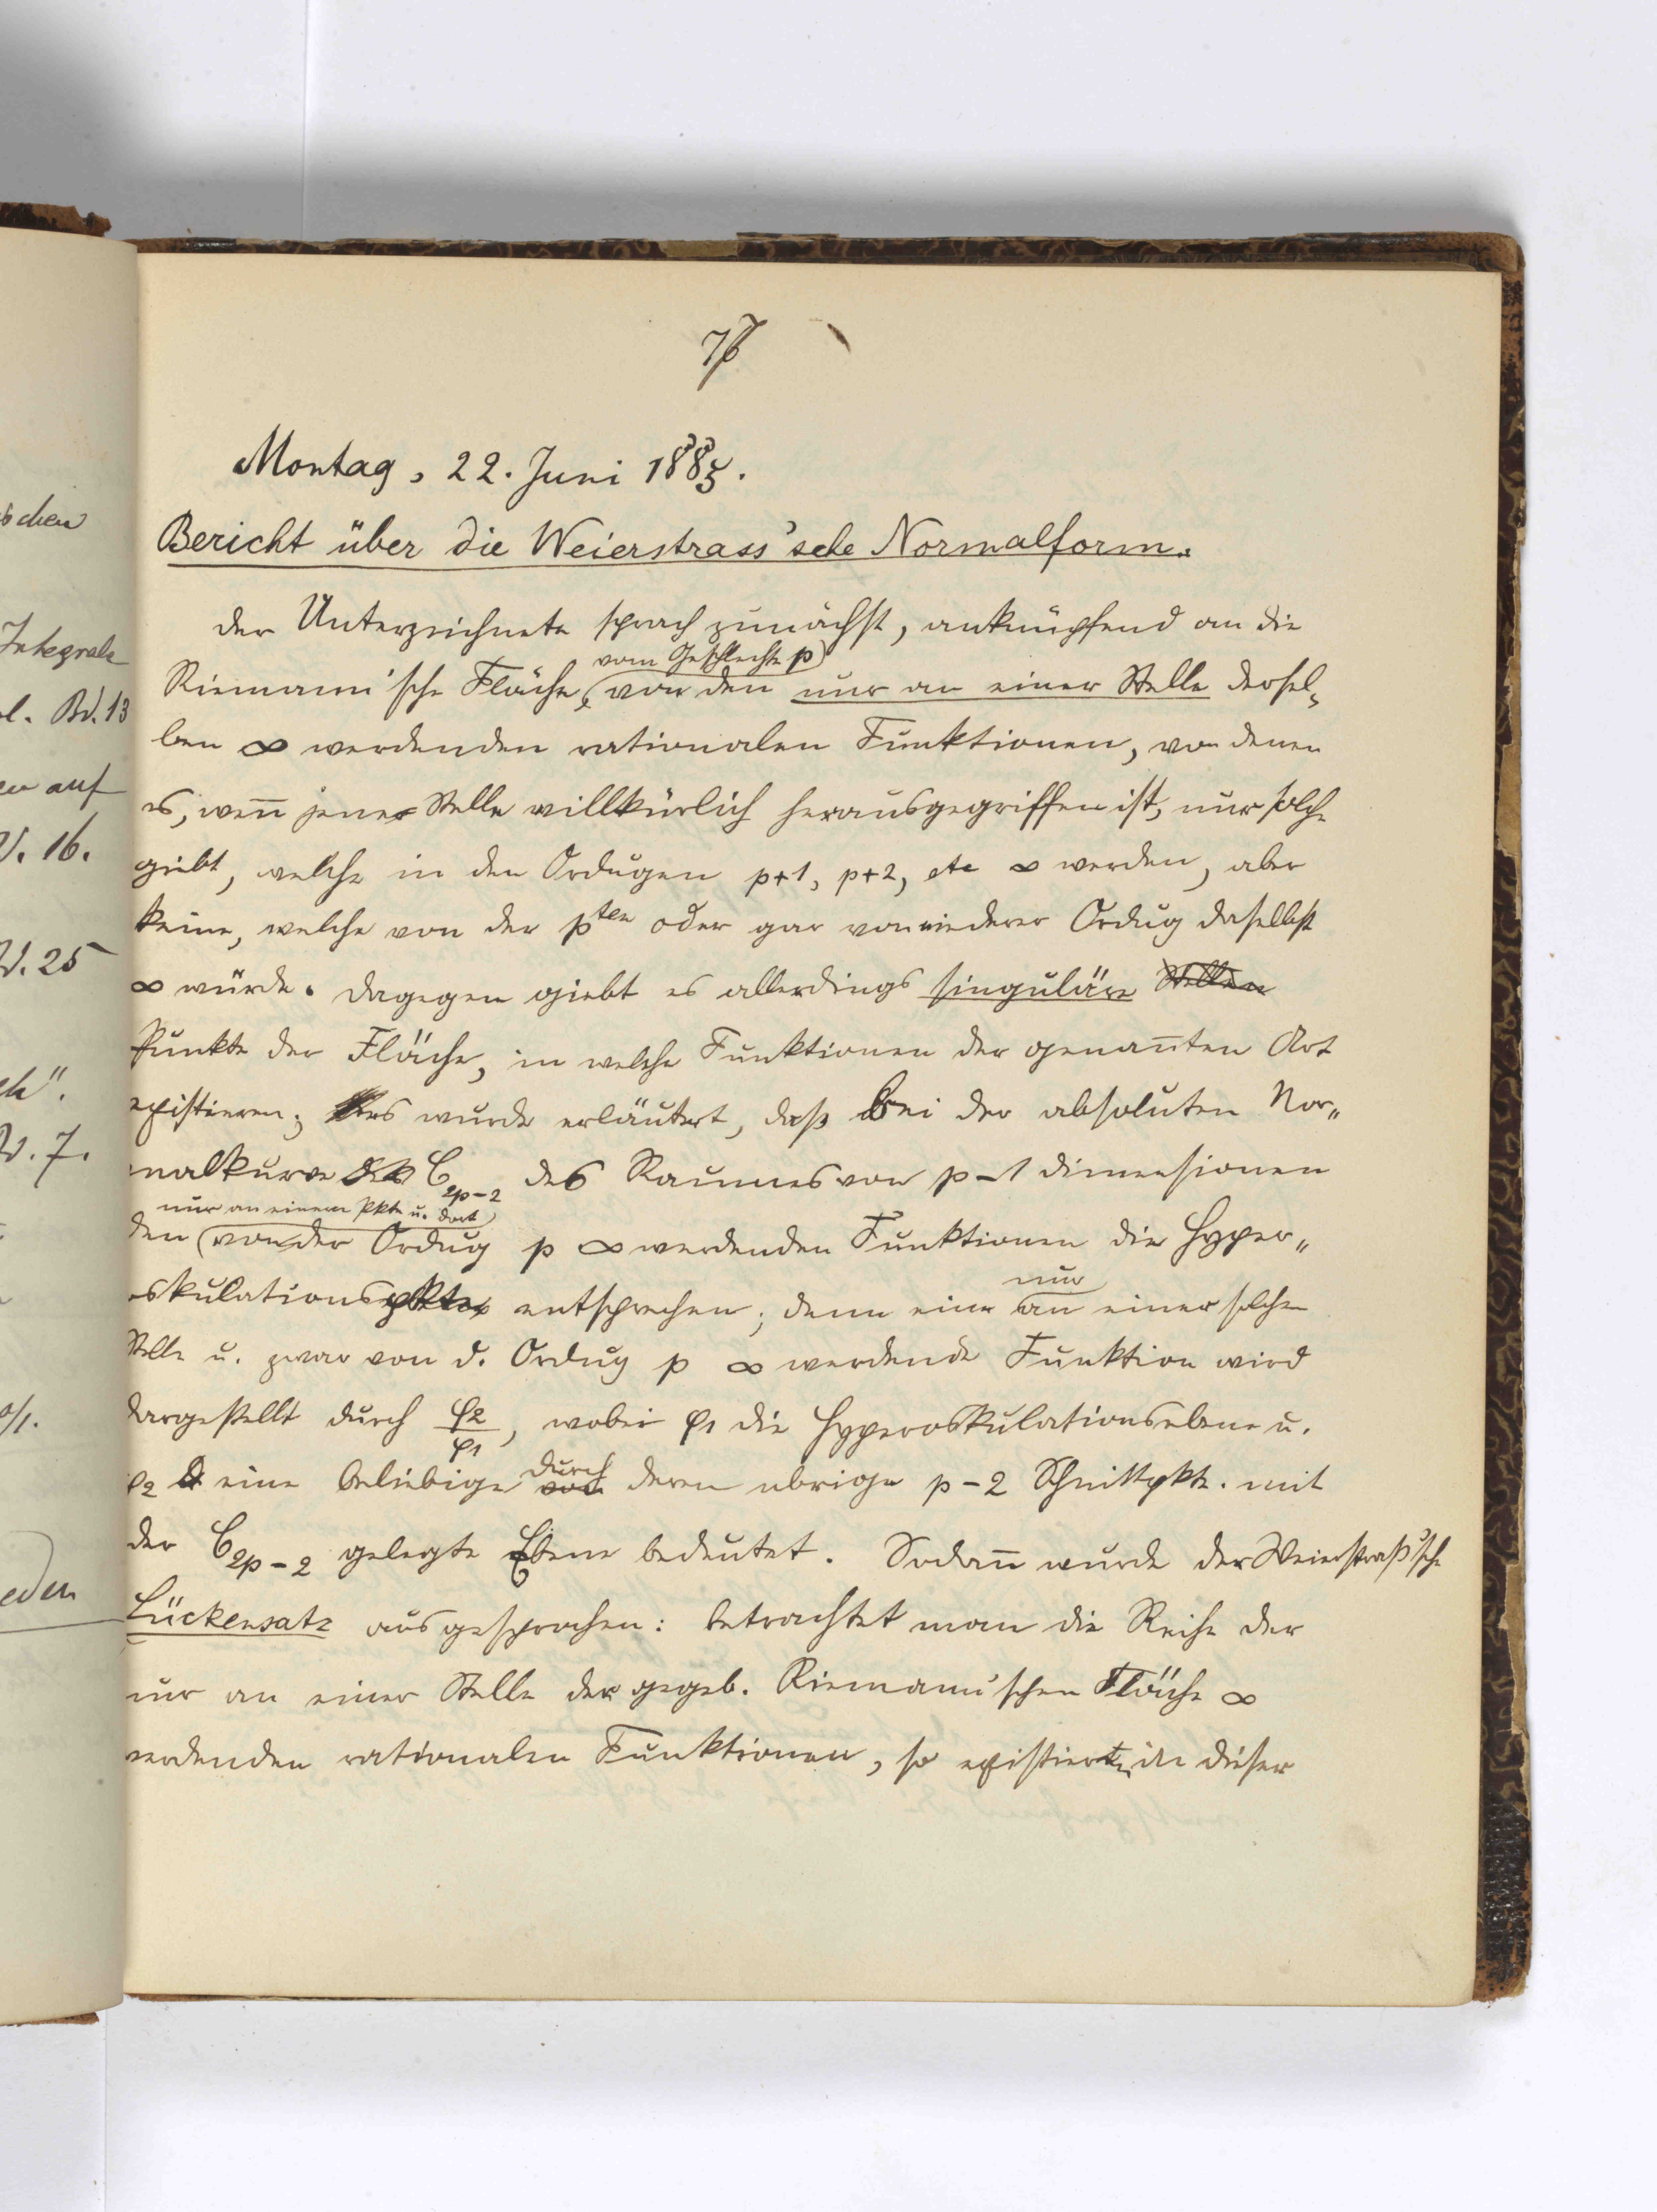 77
Montag, 22. Juni 1885.
Bericht über die Weierstrass'sche Normalform.
Der Unterzeichnete sprach zunächst, anknüpfend an die
vom Geschlechte p
Riemann'sche Fläche, von den nur an einer Stelle dersel-
ben ∞ werdenden rationalen Funktionen, von denen
es, wenn jene Stelle willkürlich herausgegriffen ist, nur solche
giebt, welche in den Ordugen p+1, p+2, etc ∞ werden, aber
keine, welche von der pten oder gar von niederer Ordug daselbst
∞ würde. Dagegen giebt es allerdings singuläre Stellen
Punkte der Fläche, in welche Funktionen der genannten Art
existieren; es wurde erläutert, daß bei der absoluten Nor-
malkurve C2p-2 des Raumes von p-1 Dimensionen
nur an einem Pkte u. dort
den von der Ordug p ∞ werdenden Funktionen die Hyper-
oskulationspkte entsprechen; denn eine an einer solchen
nur
Stelle u. zwar von d. Ordug p ∞ werdende Funktion wird
dargestellt durch φ2/φ1, wobei φ1 die Hyperoskulationsebene u.
φ2 eine beliebige durch deren übrige p-2 Schnittpkte. mit
der C2p-2 gelegte Ebene bedeutet. Sodann wurde der Weierstraß'sche
Lückensatz ausgesprochen: betrachtet man die Reihe der
nur an einer Stelle der gegeb. Riemann'schen Fläche ∞
werdenden rationalen Funktionen, so existieren in dieser
schen
Integrale
Bd. 13
en auf
V. 16.
V. 25
ch".
V. 7.
eden